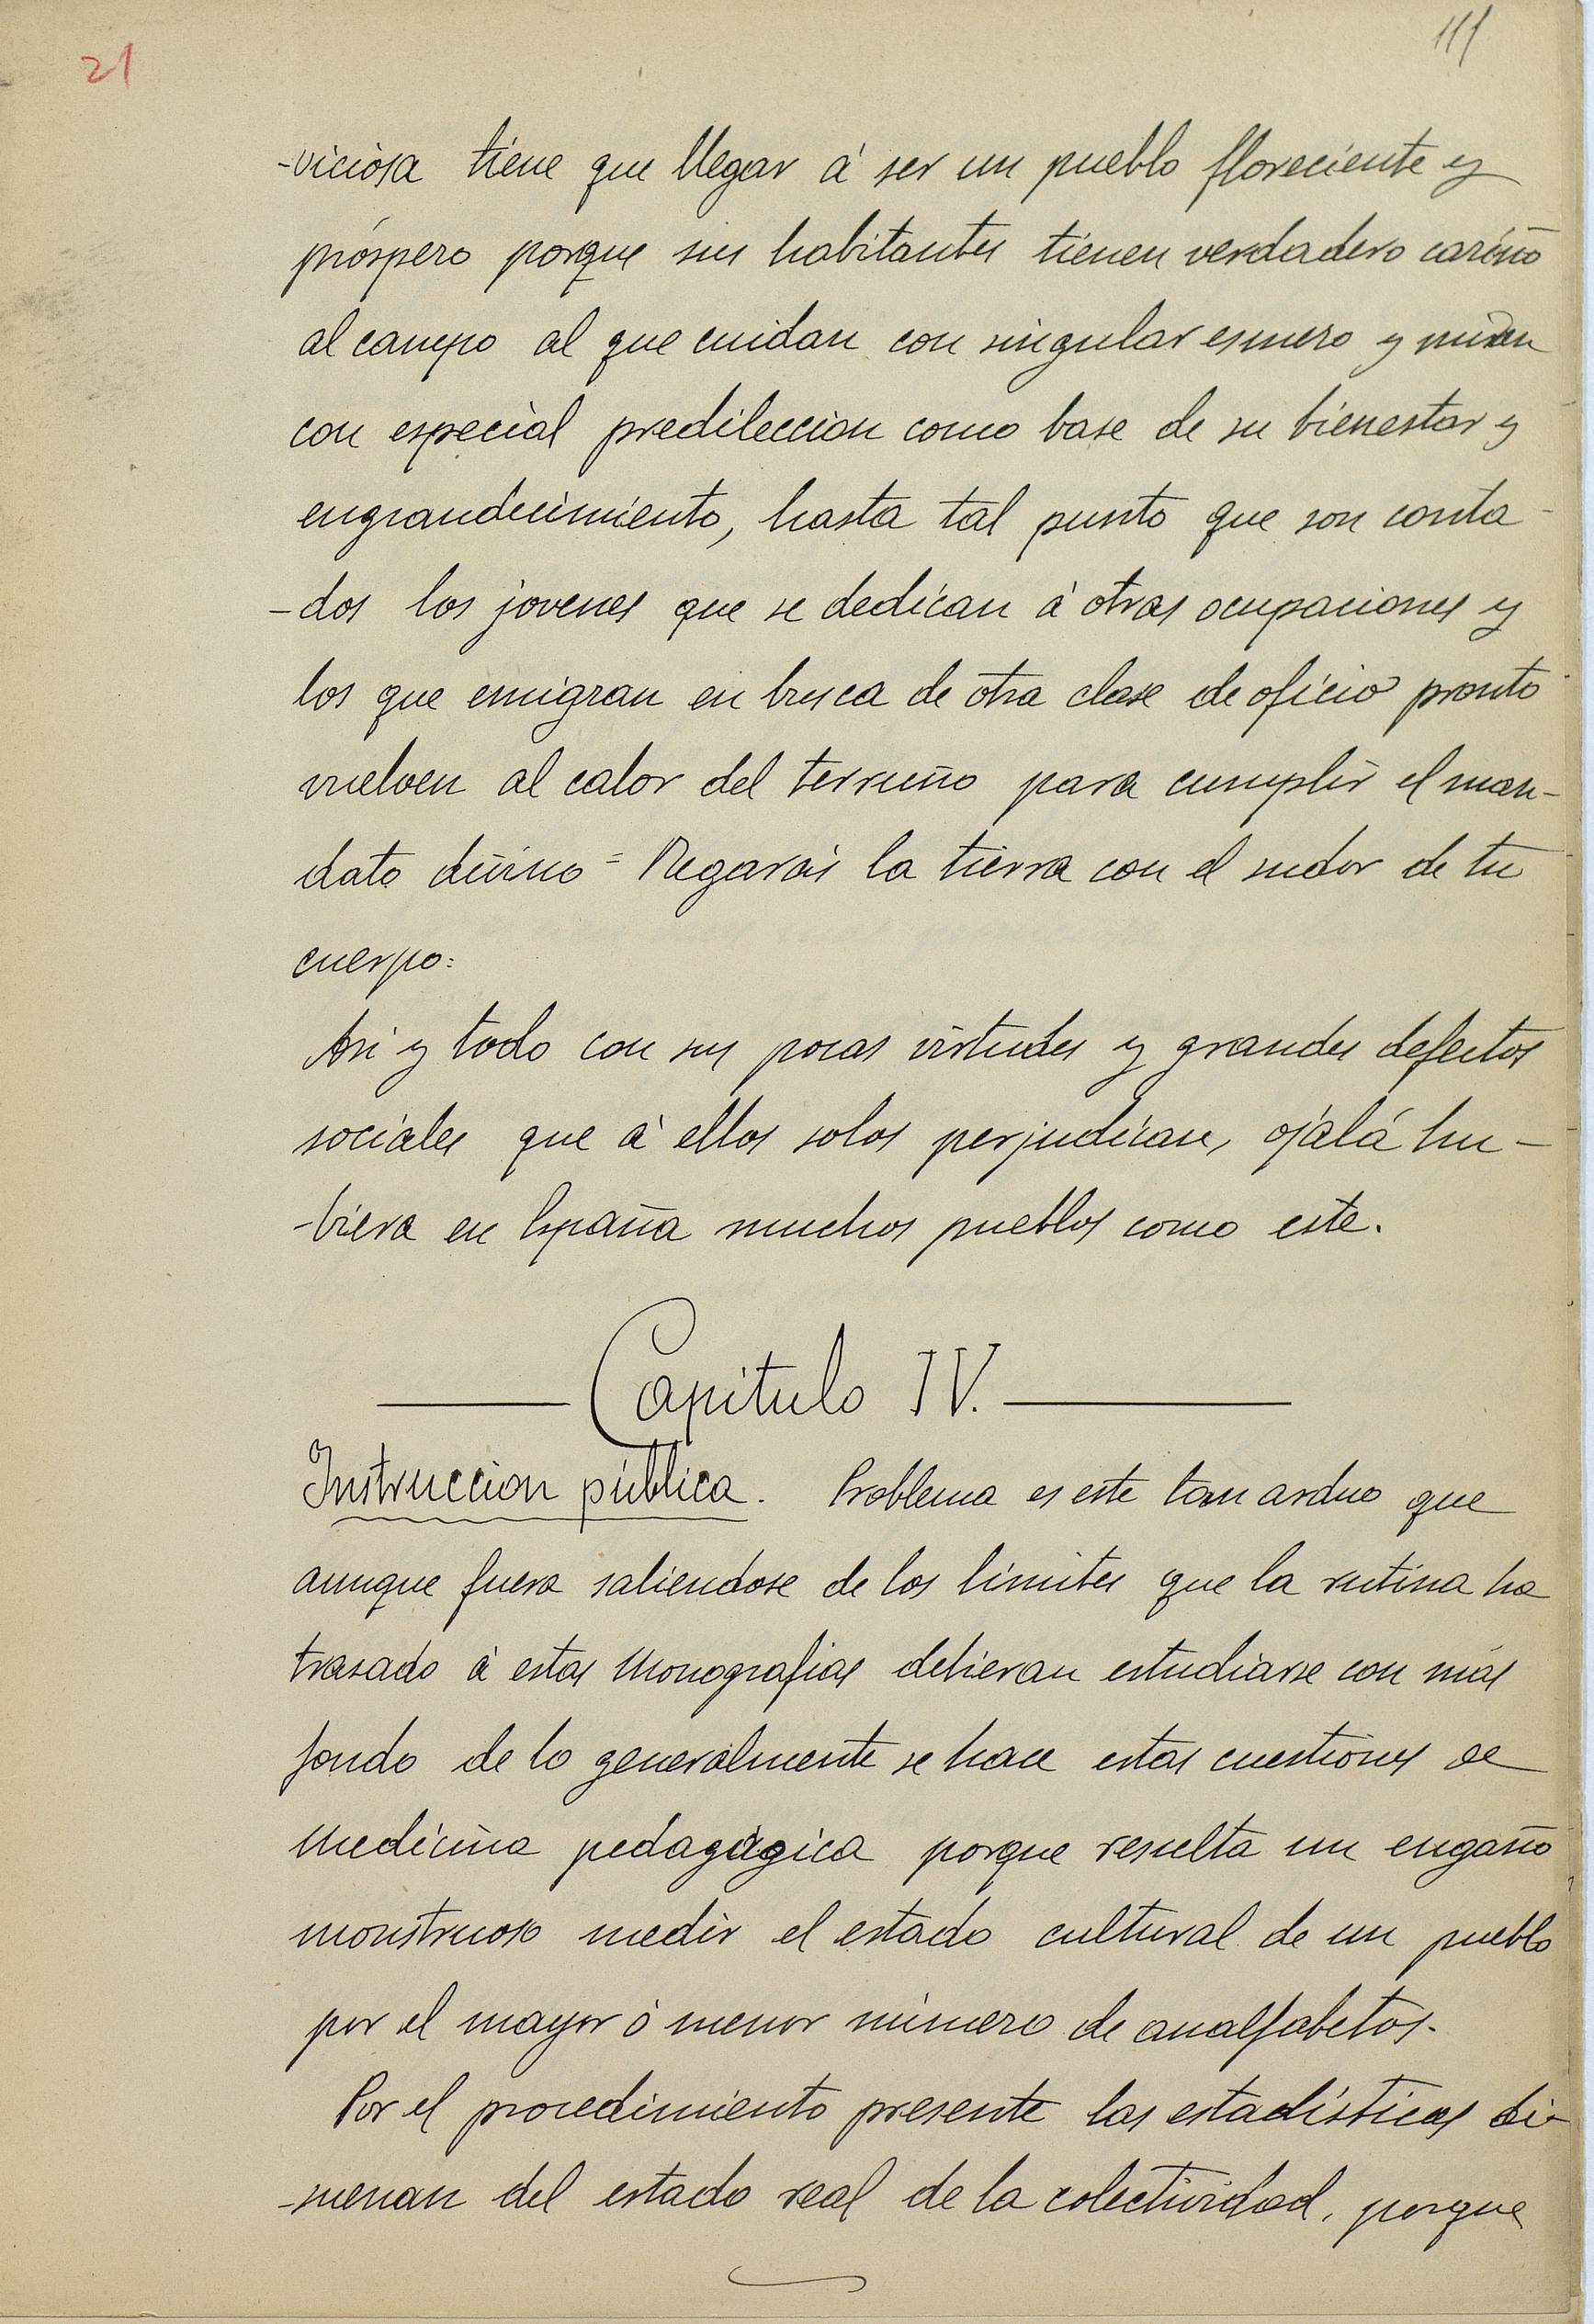 21
111
-viciosa tiene que llegar á ser un pueblo floreciente y
próspero porque sus habitantes tienen verdadero cariño
al campo al que cuidan con singular esmero y miran
con especial predileccion como base de su bienestar y
engrandecimiento, hasta tal punto que son conta-
-dos los jovenes que se dedican á otras ocupaciones y
los que emigran en busca de otra clase de oficio pronto
vuelven al calor del terruño para cumplir el man-
dato divino = Regarás la tierra con el sudor de tu
cuerpo=
Asi y todo con sus pocas virtudes y grandes defectos
sociales que á ellos solos perjudican, ojalá hu-
-biera en España muchos pueblos como este.
Capitulo IV.
Instruccion pública. Problema es este tan arduo que
aunque fuera saliendose de los limites que la rutina ha
trasado á estas Monografias debieran estudiarse con más
fondo de lo generalmente se hace estas cuestiones de
Medicina pedagógica porque resulta un engaño
monstruoso medir el estado cultural de un pueblo
por el mayor ó menor número de analfabetos.
Por el procedimiento presente las estadísticas di-
-suenan del estado real de la colectividad, porque